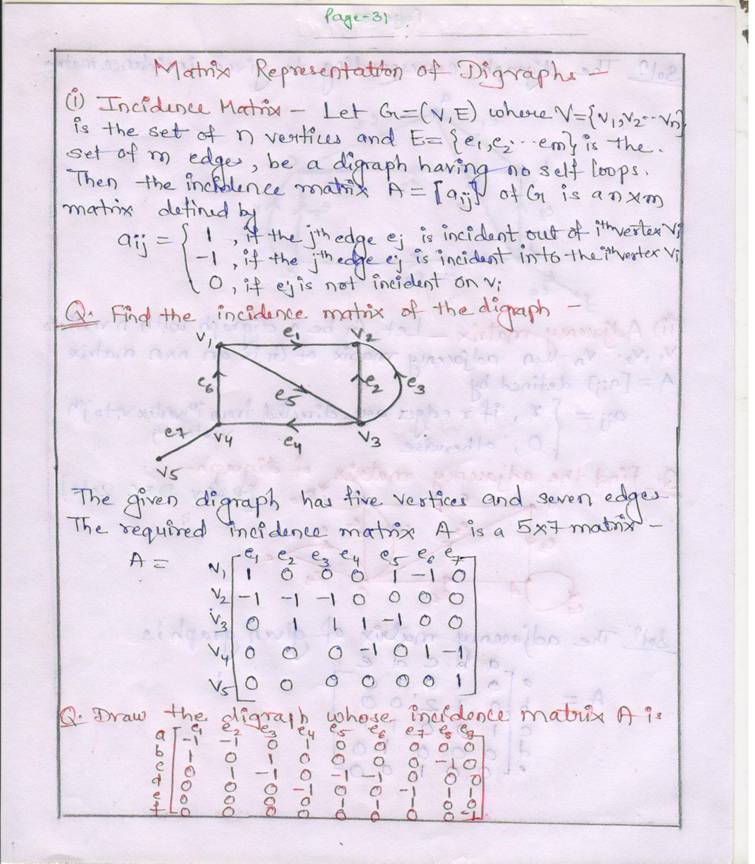 Page-31
Matrix Representation of Digraphs -
(i) Incidence Matrix - Let G=(V,E) where V={V1,V2...Vn}
is the set of n vertices and E={e1,e2...em} is the
set of m edges, be a digraph having no self loops.
Then the incidence matrix A=[aij] of G is a nxm
matrix defined by
aij = { 1, if the jth edge ej is incident out of ith vertex Vi
-1, if the jth edge ej is incident into the ith vertex Vi
0, if ej is not incident on Vi
Q. Find the incidence matrix of the digraph -
V1 e1 V2
e6 e5 e2 e3
e7 V4 e4 V3
V5
The given digraph has five vertices and seven edges
The required incidence matrix A is a 5x7 matrix -
A =
e1 e2 e3 e4 e5 e6 e7
V1 1 0 0 0 1 -1 0
V2 -1 -1 -1 0 0 0 0
V3 0 1 1 1 -1 0 0
V4 0 0 0 -1 0 1 -1
V5 0 0 0 0 0 0 1
Q. Draw the digraph whose incidence matrix A is
e1 e2 e3 e4 e5 e6 e7 e8 e9
a -1 -1 0 1 0 0 0 0 0
b 1 0 1 0 0 0 0 -1 0
c 0 1 -1 0 -1 -1 0 0 0
d 0 0 0 -1 0 0 -1 1 1
e 0 0 0 0 1 0 1 0 0
f 0 0 0 0 0 1 0 0 -1